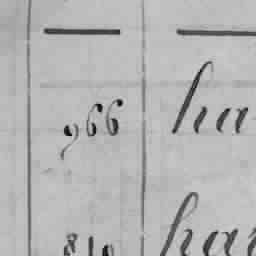 966 ha
810 har